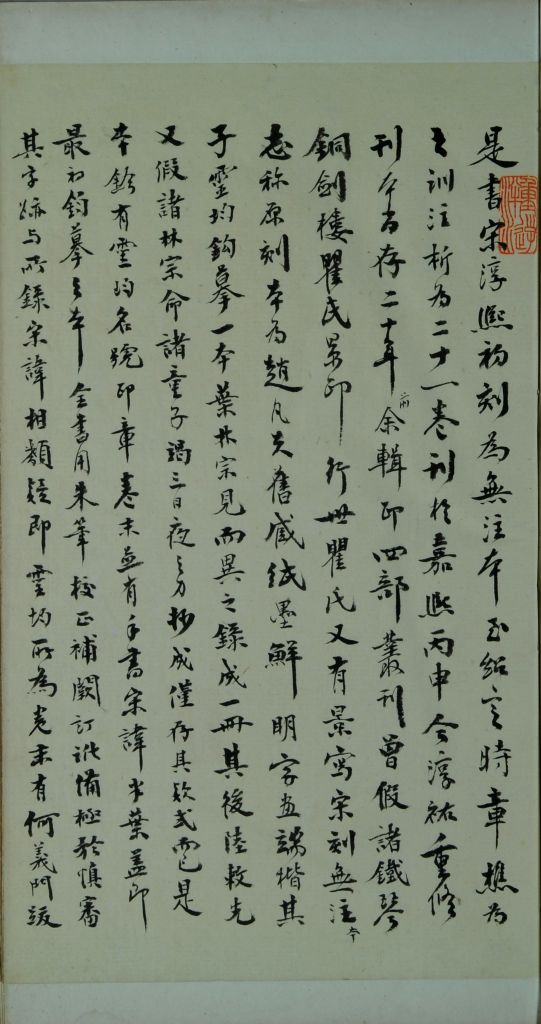 是書宋淳熙初刻為無注本至紹定時章樵為
之訓注析為二十一卷刊於嘉熙丙申今淳祐重修
刊本尚存二十年前余輯印四部叢刊曾假諸鐵琴
銅劍樓瞿氏景印行世瞿氏又有景寫宋刻無注本
志称原刻本為趙凡夫舊藏紙墨鮮明字畫端楷其
子靈均鈎摹一本葉林宗見而異之錄成一冊其後陸敕先
又假諸林宗命諸童子竭三日夜之力抄成僅存其款式而已是
本鈐有靈均名號印章卷末並有手書宋諱半葉蓋即
最初鈎摹之本全書用朱筆校正補闕訂訛備極於慎審
其字跡与所錄宋諱相類疑即靈均所為卷末有何義門跋